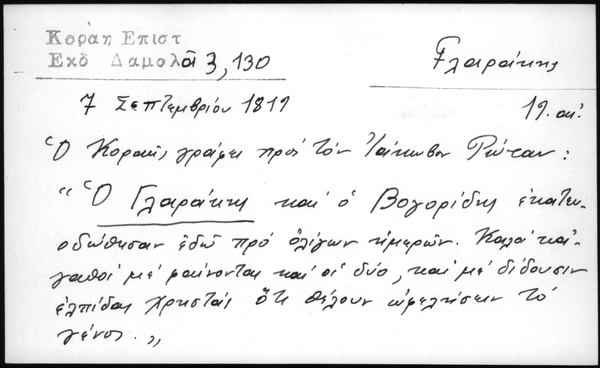 Κοραη Επιστ
Εκδ Δαμαλᾶ 3, 130
Γλαράκης
7 Σεπτεμβρίου 1819
19. αἰ.
Ὁ Κοραῆς γράφει πρὸς τὸν Ἰάκωβον Ρώταν:
"Ὁ Γλαράκης καὶ ὁ Βογορίδης ἐκατευ-
οδώθησαν ἐδῶ πρὸ ὀλίγων ἡμερῶν. Καλοὶ κἀ-
γαθοί μὲ φαίνονται καὶ οἱ δύο, καὶ μὲ δίδουσιν
ἐλπίδας χρηστὰς ὅτι θέλουν ὠφελήσειν τὸ
γένος."